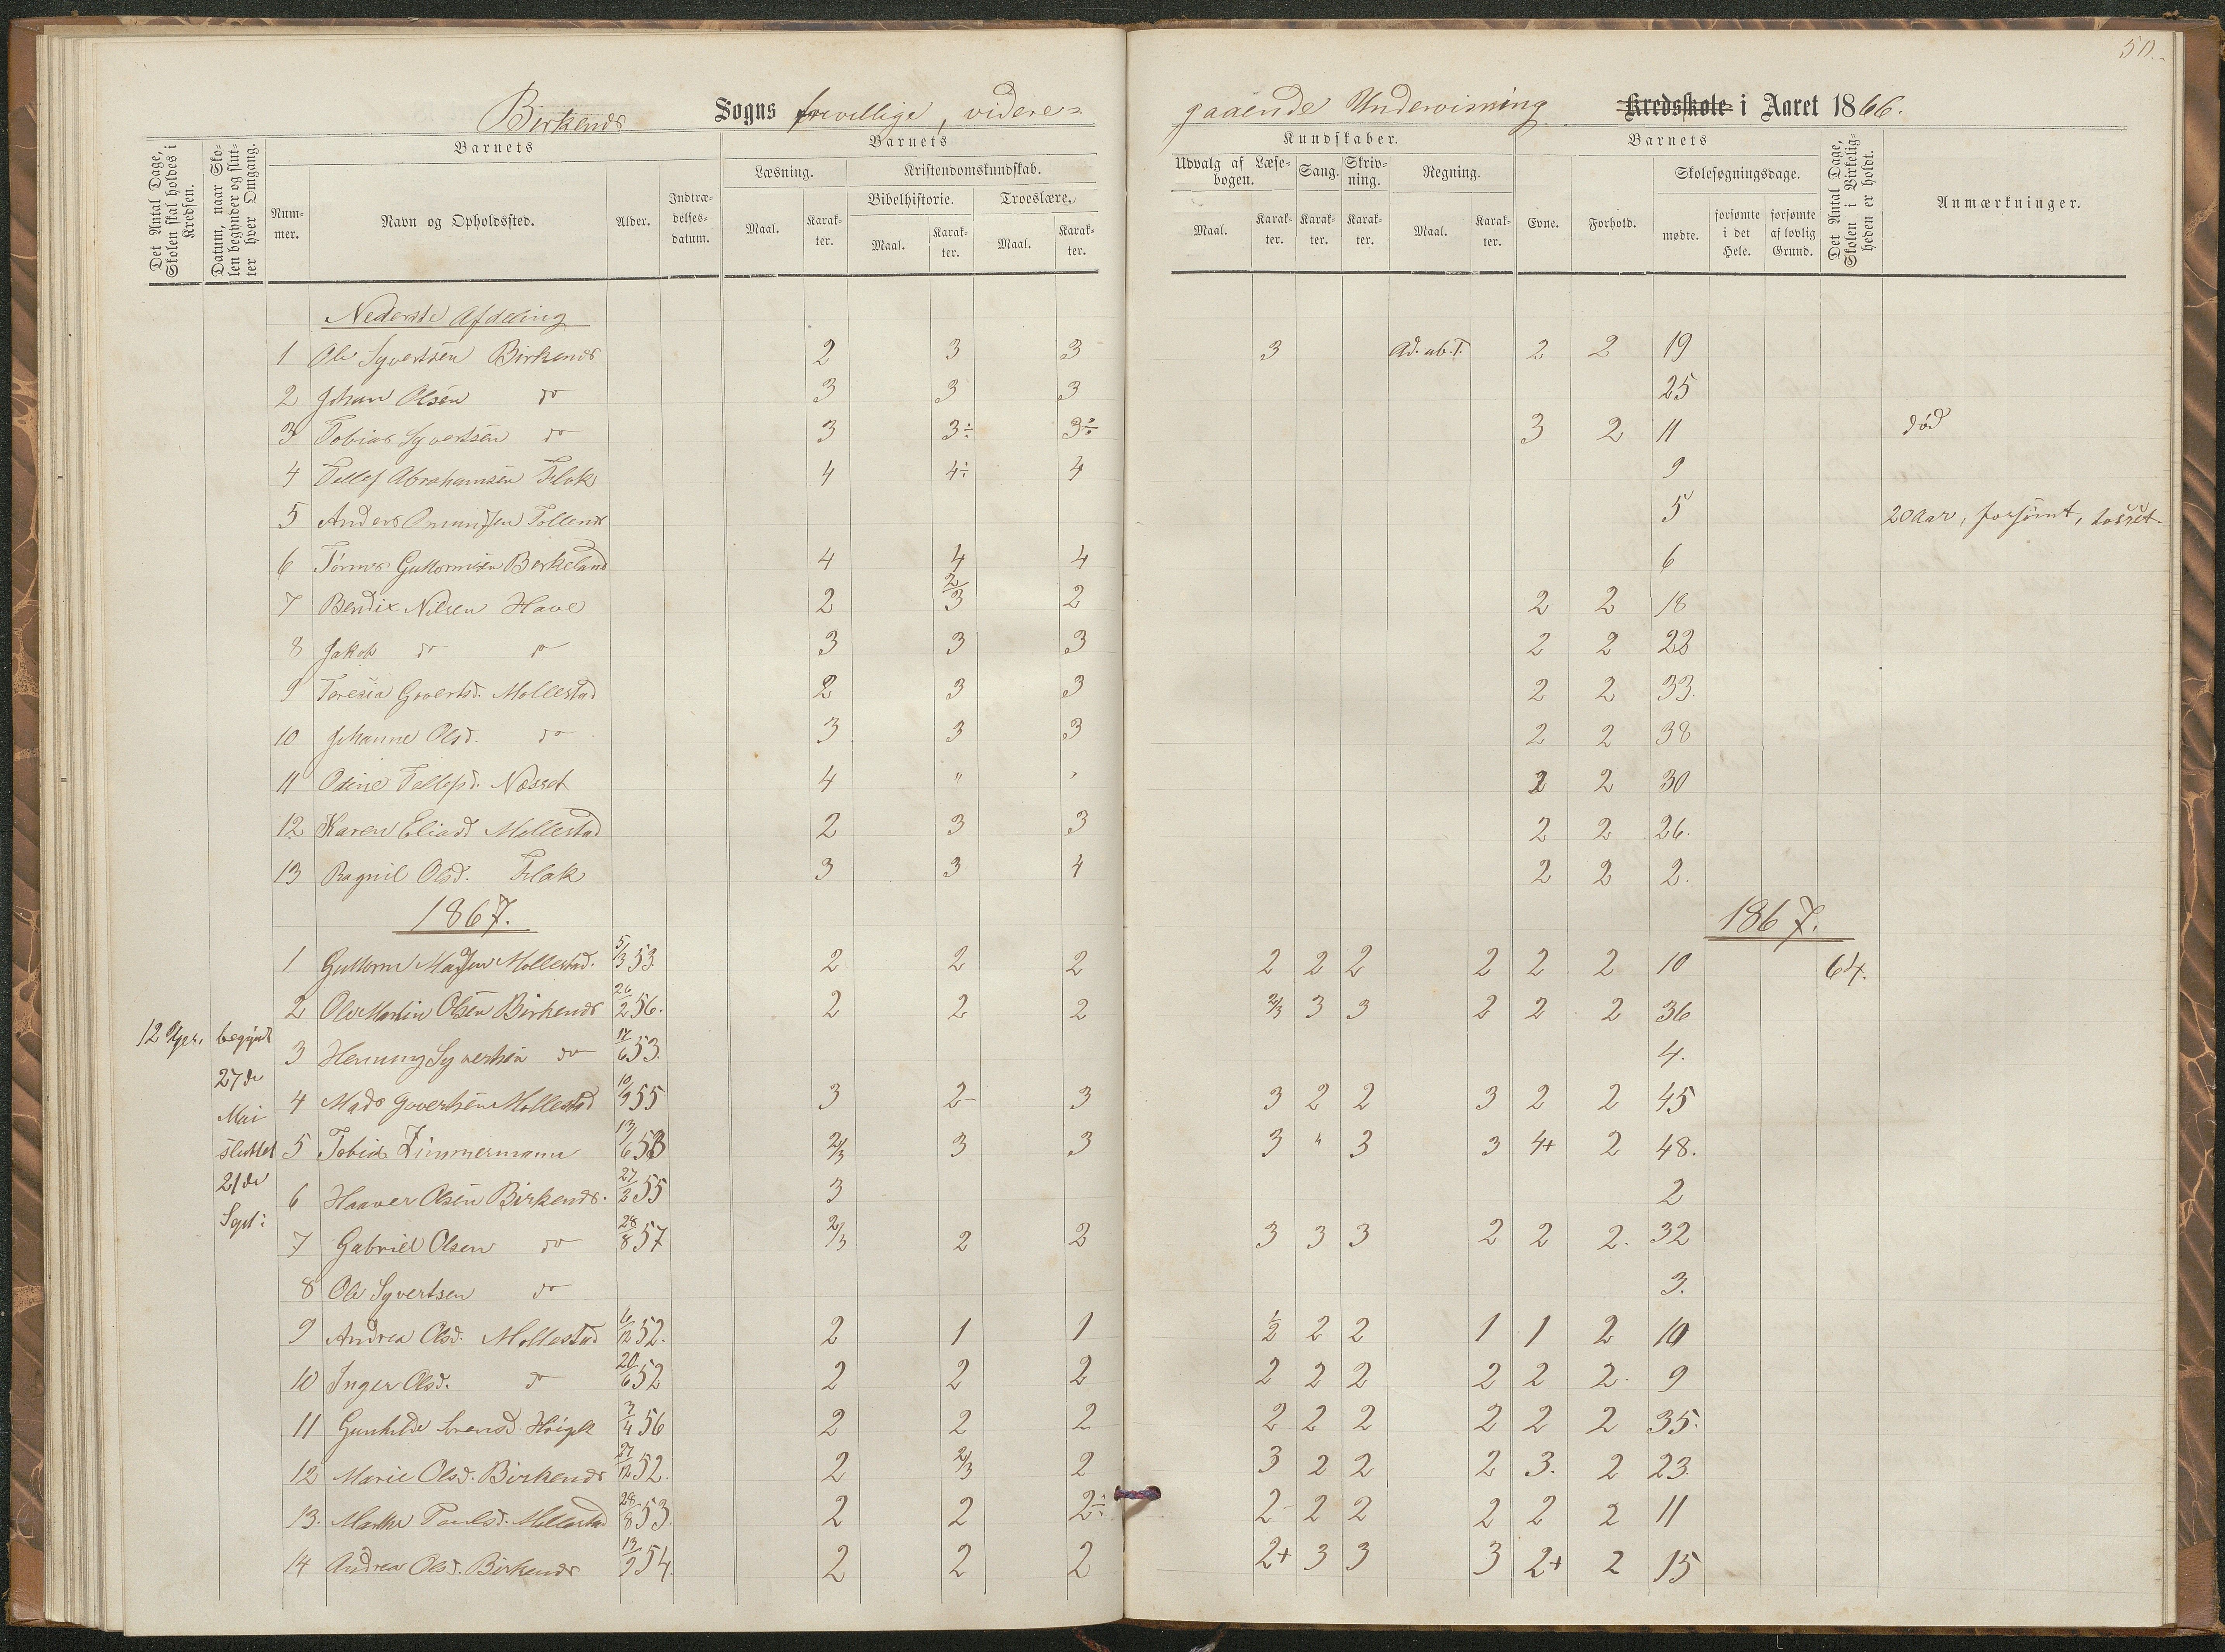 50.
Birkenes Sogns frivillige, videre= gaaende Undervisning Kredsskole i Aaret 1866.
Det Antal Dage, Skolen skal holdes i Kredsen.
Datum, naar Skolen begynder og slutter hver Omgang.
Barnets
Nummer.
Navn og Opholdssted.
Alder.
Indtrædelsesdatum.
Barnets
Læsning.
Maal.
Karakter.
Kristendomskundskab.
Bibelhistorie.
Maal.
Karakter.
Troeslære.
Maal.
Karakter.
Kundskaber.
Udvalg af Læsebogen.
Maal.
Karakter.
Sang.
Karakter.
Skrivning.
Karakter.
Regning.
Maal.
Karakter.
Barnets
Evne.
Forhold.
Skolesøgningsdage.
mødte.
forsømte i det Hele.
forsømte af lovlig Grund.
Det Antal Dage, Skolen i Virkeligheden er holdt.
Anmærkninger.
Nederste Afdeling
1 Ole Syvertsen Birkenes 2 3 3 3 Ad. ub. T. 2 2 19
2 Johan Olsen do 3 3 3 25
3 Tobias Syvertsen do 3 3÷ 3÷ 3 2 11 død
4 Tellef Abrahamsen Flak 4 4÷ 4 9
5 Anders Omundsen Tollenes 5 20 Aar, forsømt, tosset.
6 Tørres Guttormsen Birkeland 4 4 4 6
7 Bendix Nilsen Have 2 2/3 2 2 2 18
8 Jakob do do 3 3 3 2 2 22
9 Toresia Govertsd. Mollestad 2 3 3 2 2 33.
10 Johanne Olsd. do 3 3 3 2 2 38
11 Odine Tellefsd. Næsset 4 " " 2 2 30
12 Karen Eliasd Mollestad 2 3 3 2 2 26.
13 Ragnil Olsd. Flak 3 3 4 2 2 2.
1867. 1867.
1 Guttorm Madsen Mollestad. 5/3 53. 2 2 2 2 2 2 2 2 2 10 64.
2 Ole Martin Olsen Birkenes 26/2 56. 2 2 2 2/3 3 3 2 2 2 36
12 Uger. begyndt 27de Mai sluttet 21de Sept:
3 Henning Syvertsen do 17/6 53. 4.
4 Mads Govertsen Mollestad 10/9 55 3 2- 3 3 2 2 3 2 2 45
5 Tobias Zimmermann 13/6 53 2/3 3 3 3 " 3 3 4+ 2 48.
6 Haaver Olsen Birkenes. 27/2 55 3 2
7 Gabriel Olsen do 28/8 57 2/3 2 2 3 3 3 2 2 2. 32
8 Ole Syvertsen do 3.
9 Andrea Olsd. Mollestad 6/12 52. 2 1 1 1/2 2 2 1 1 2 10
10 Inger Olsd. do 20/6 52 2 2 2 2 2 2 2 2 2. 9
11 Gunhilde 3/4 56 2 2 2 2 2 2 2 2 2 35.
12 Marie Olsd. Birkenes 27/12 52. 2 2/3 2 3 2 2 2 3. 2 23.
13. Marthe Poulsd. Mollestad 28/8 53. 2 2 2÷ 2- 2 2 2 2 2 11
14 Andrea Olsd. Birkenes 13/9 54. 2 2 2 2+ 3 3 3 2+ 2 15